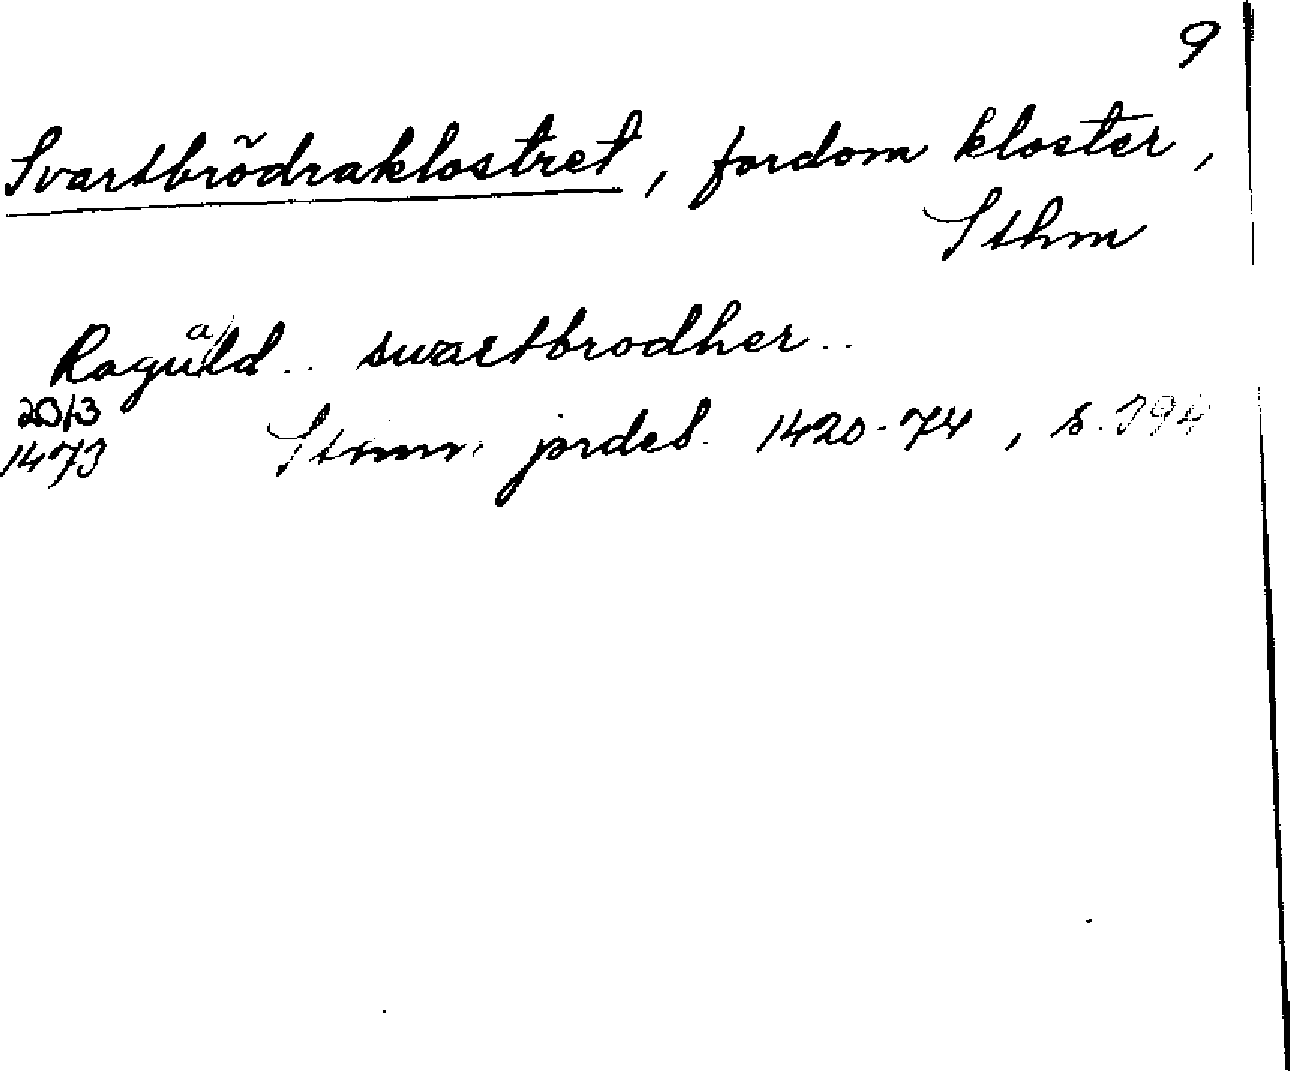 9
Svartbrödraklostret, fordom kloster,
Sthm
Raguald .. swartbrodher ..
20/3
1473 Sthm. jordeb. 1420-74, s. 394